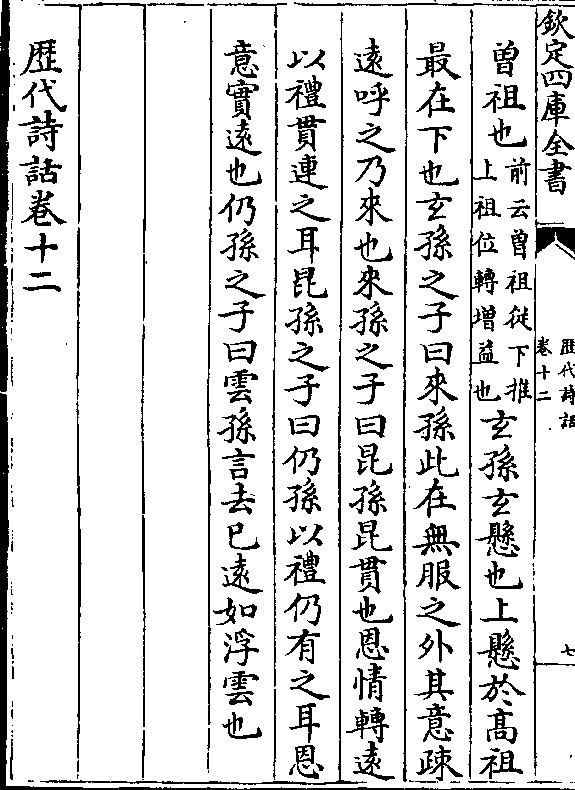 欽定四庫全書
歷代詩話
卷十二
七
曽祖也前云曽祖從下推上祖位轉增益也玄孫玄懸也上懸於髙祖
最在下也玄孫之子曰來孫此在無服之外其意疎
逺呼之乃來也來孫之子曰昆孫昆貫也恩情轉逺
以禮貫連之耳昆孫之子曰仍孫以禮仍有之耳恩
意實逺也仍孫之子曰雲孫言去已逺如浮雲也
歷代詩話卷十二